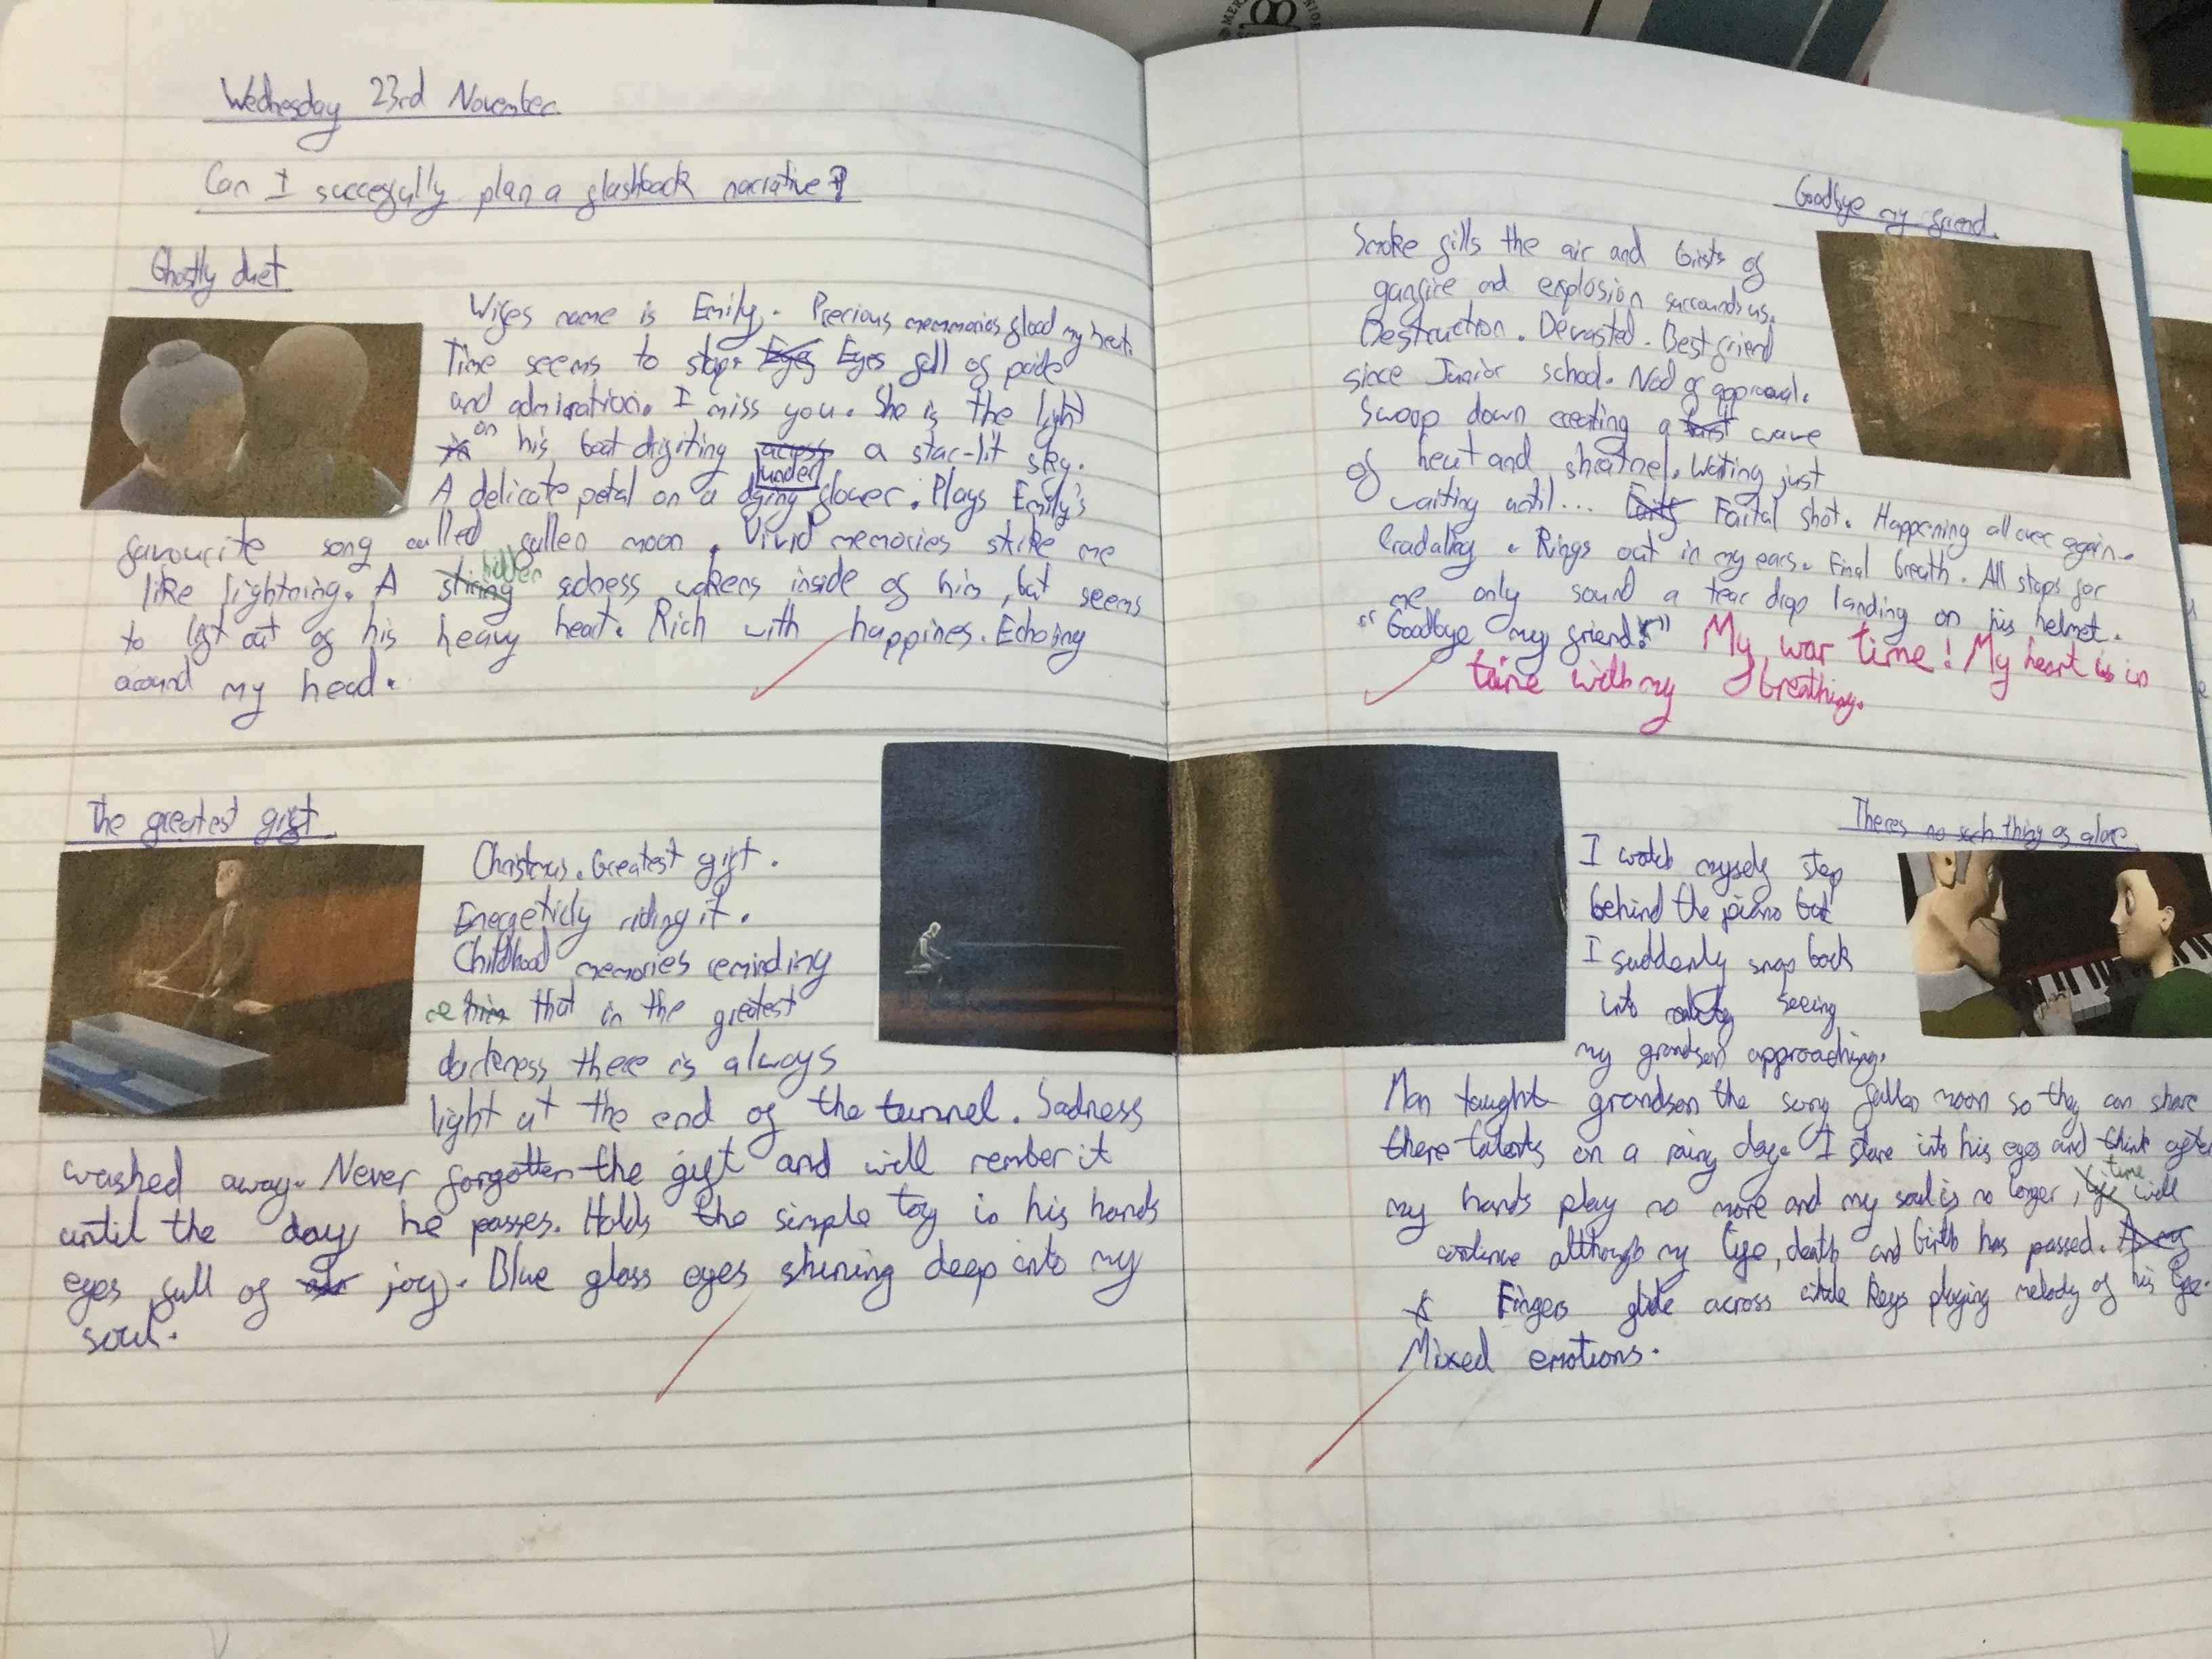 Wednesday 23rd November
Can I succesfully plan a flashback narrative?
Ghostly duet
Wifes name is Emily. Precious memmories flood my heart.
Time seems to stop. Eyes Eyes full of pride
and admiration. I miss you. She is the light
on his boat drifiting across under a star-lit sky.
A delicate petal on a dying flower. Plays Emily's
favourite song called fallen moon. Vivid memories strike me
like lightning. A string hidden sadness wakens inside of him, but seems
to lift out of his heavy heart. Rich with happines. Echoing
around my head.
The greatest gift
Christmas. Greatest gift.
Energeticly riding it.
Childhood memories reminding
me him that in the greatest
darkness there is always
light at the end of the tunnel. Sadness
washed away. Never forgotten the gift and will rember it
until the day he passes. Holds the simple toy in his hands
eyes full of joy. Blue glass eyes shining deep into my
soul.
Goodbye my friend.
Smoke fills the air and bursts of
gunfire and explosion surrounds us.
Destruction. Devasted. Best friend
since Junior school. Nod of approval.
Swoop down creating a wave
of heat and shratnel. Waiting just
waiting until... Faital shot. Happening all over again.
Rings out in my ears. Final breath. All stops for
me only sound a tear drop landing on his helmet.
"Goodbye my friend." My war time! My heart is in
time with my breathing.
Theres no such thing as alone
I watch myself step
behind the piano but
I suddenly snap back
into reality seeing
my grandson approaching.
Man taught grandson the song fallen moon so they can share
there talents on a rainy day. I stare into his eyes and think after
my hands play no more and my soul is no longer, life time will
continue although my life, death and birth has passed.
Fingers glide across keys playing melody of his life.
Mixed emotions.